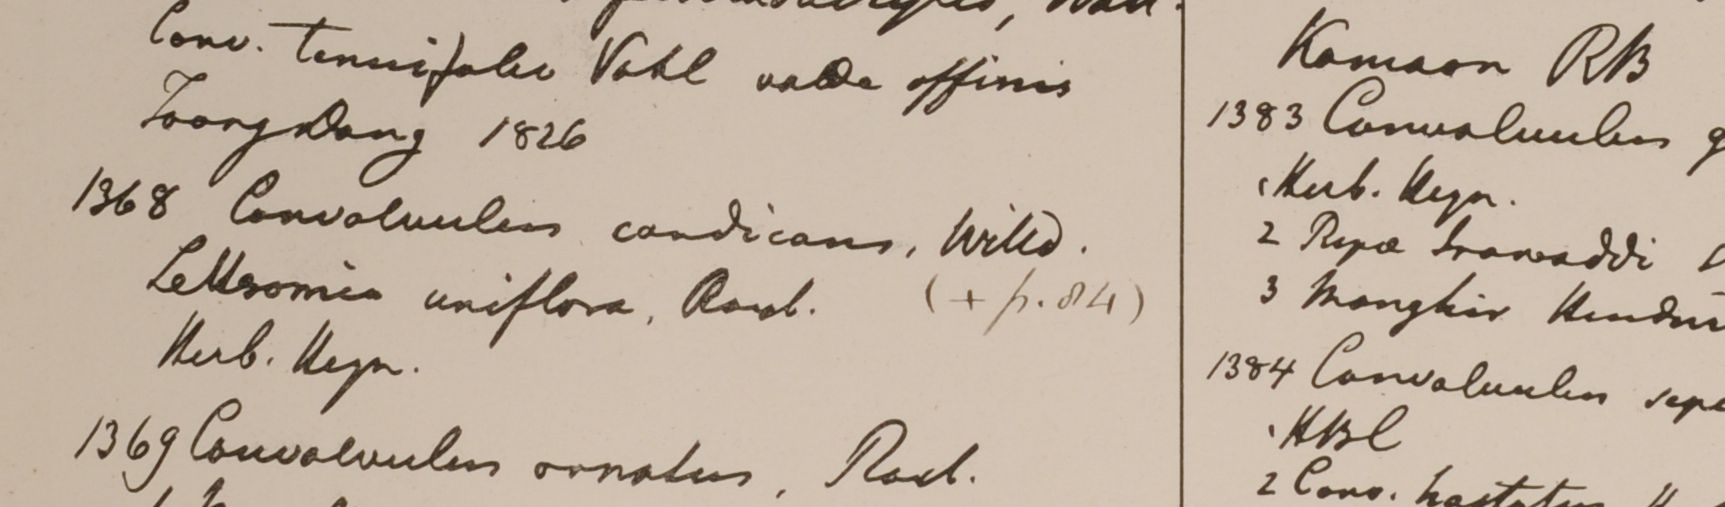 Conv. tenuifolio Vahl valde affinis
Toong Dong 1826
1368 Convolvulus candicans, Willd.
Lettsomia uniflora, Roxb. (+ p. 84)
Herb. Heyn.
1369 Convolvulus ornatus, Roxb.
Kamaon RB
1383 Convolvulus
1 Herb. Heyn.
2 Ripa Irawaddi
3 Monghir
1384 Convolvulus
1 HBC
2 Conv. hastatus